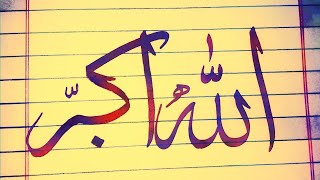 اللّٰهُ اکبرّ